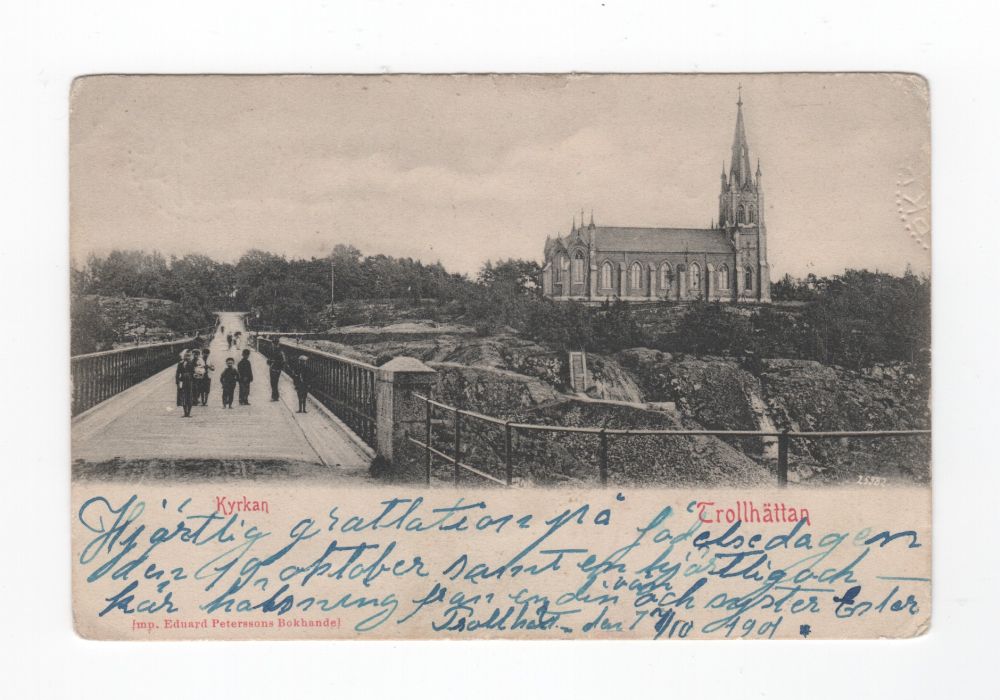 Kyrkan
Trollhättan
Hjärtlig gratlation på födelsedagen
den 19 oktober samt en hjärtlig och
kär hälsning från en din vän och syster Ester
Imp. Eduard Peterssons Bokhandel
Trollhät. den 1901